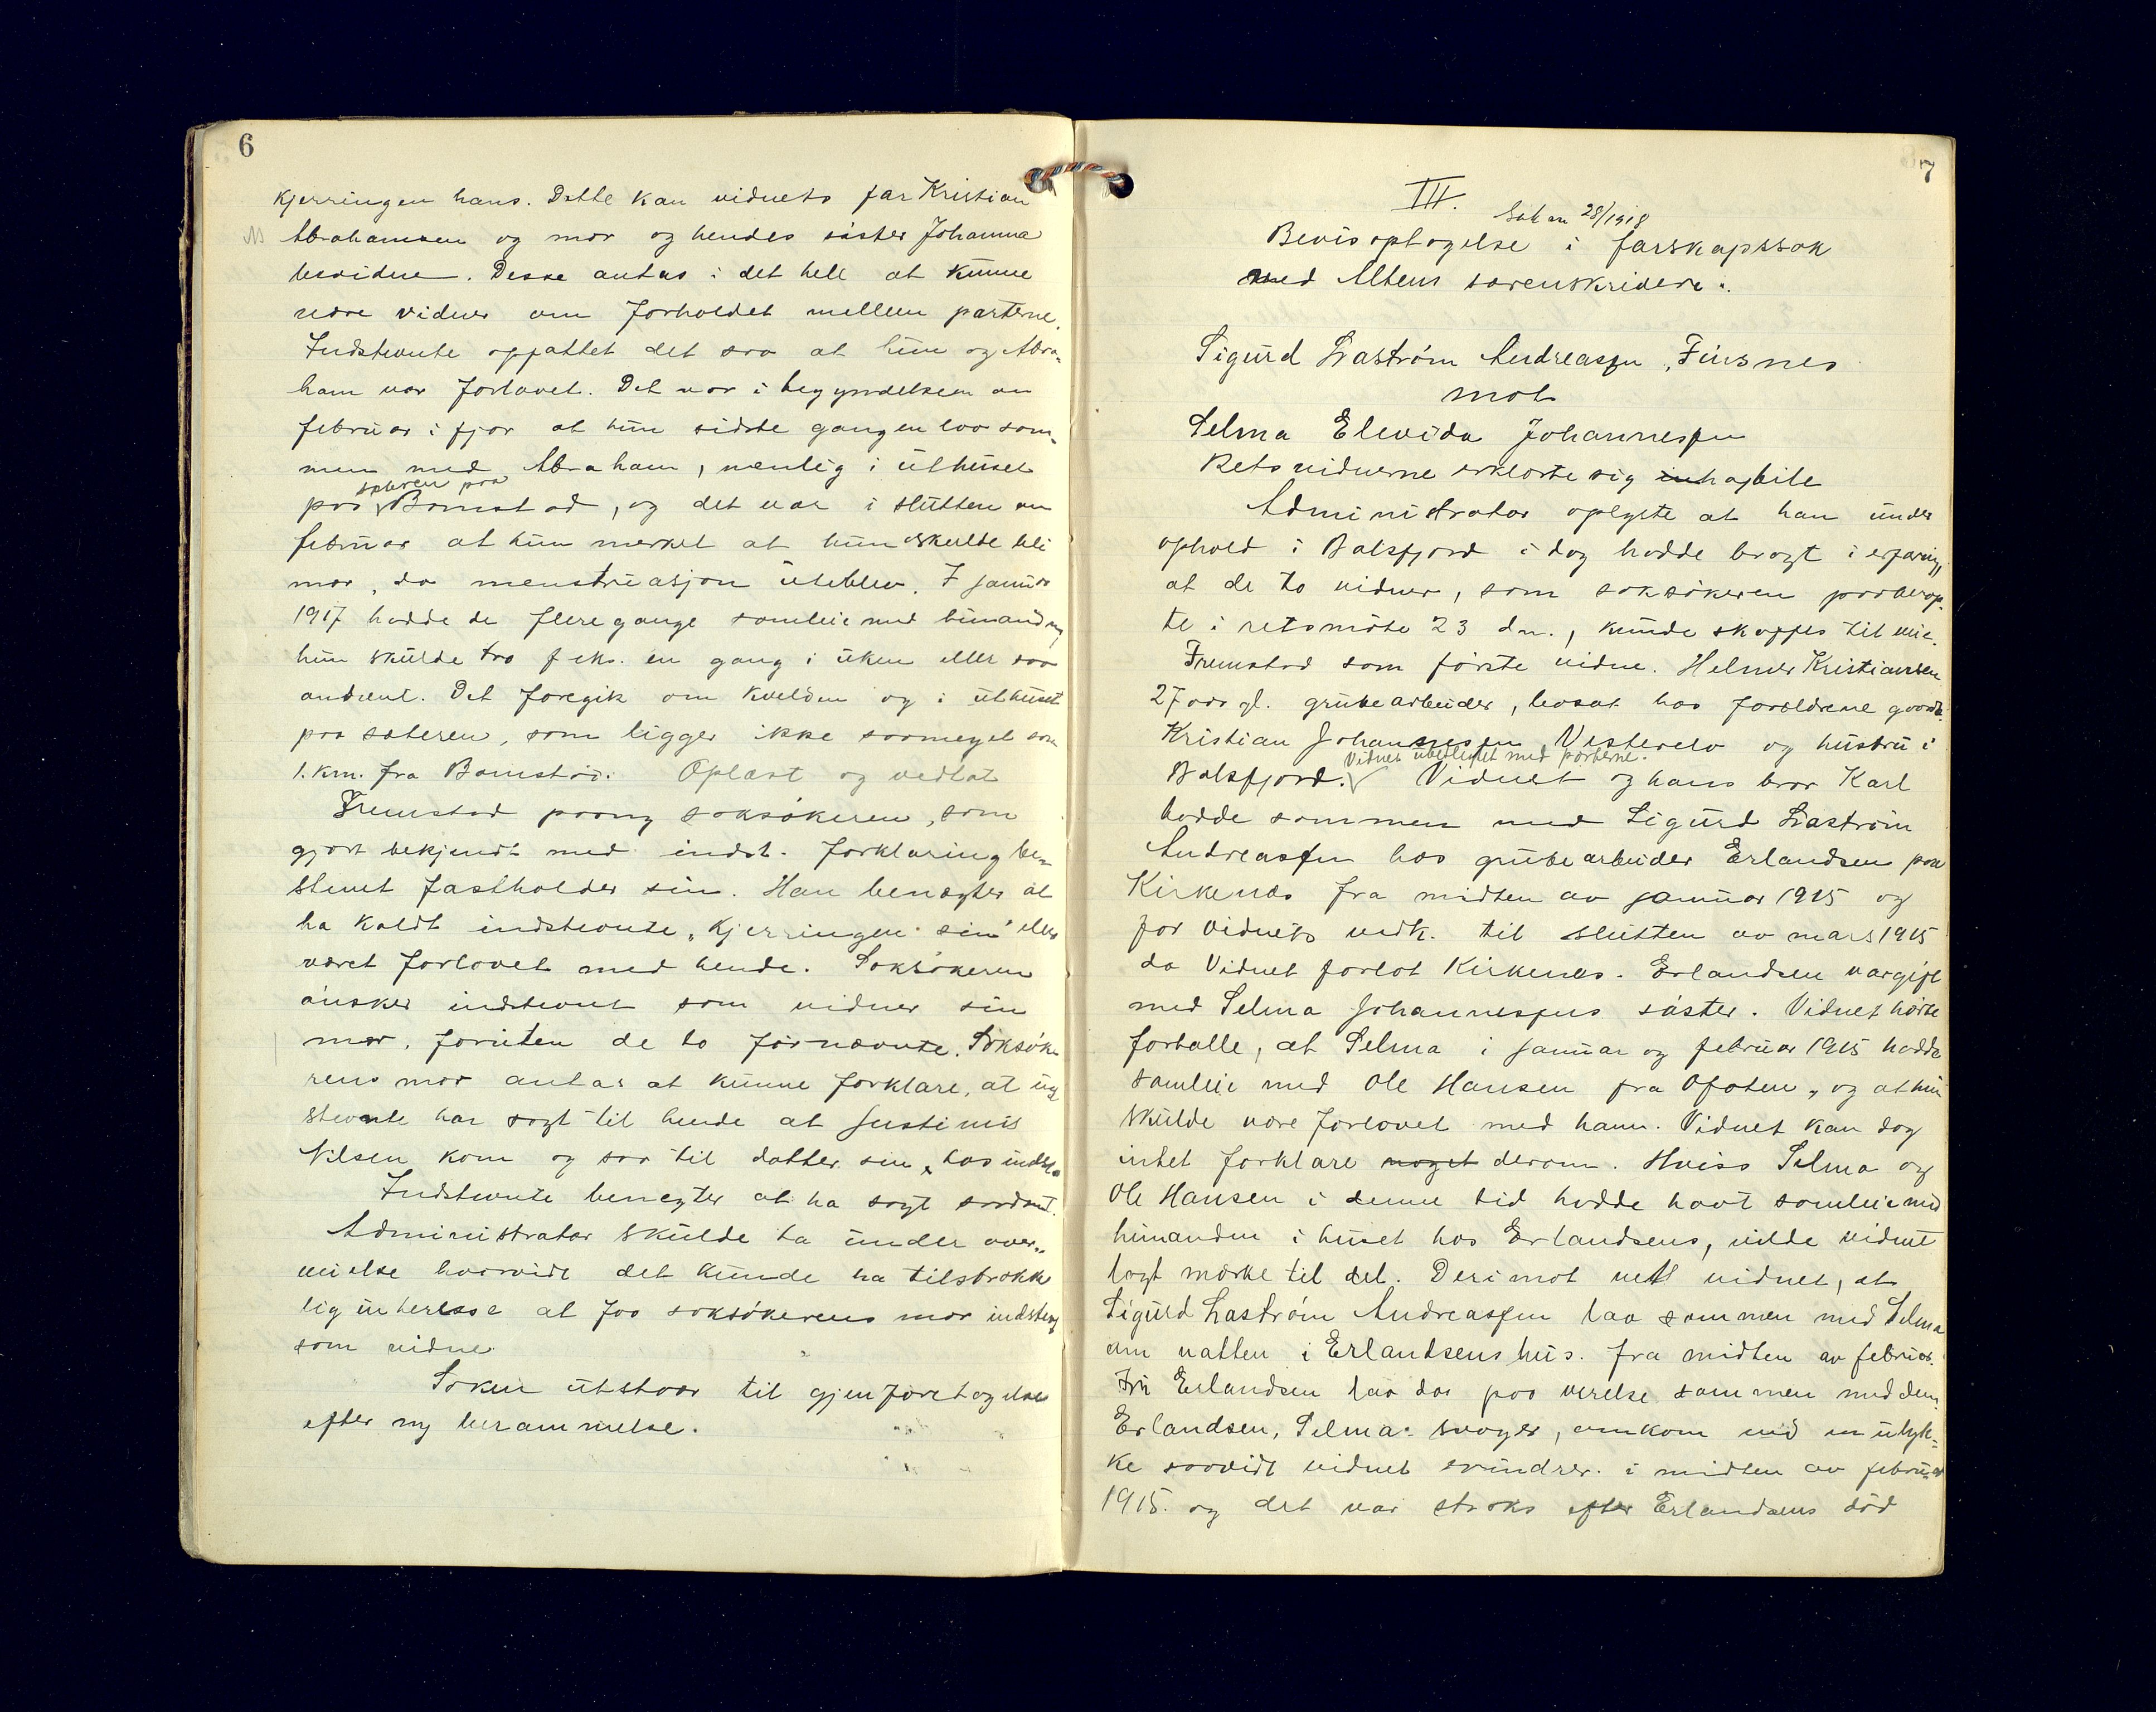 6
kjerringen hans. Dette kan vidnets far Kristian
Abrahamsen og mor og hendes søster Johanna
bevidne. Desse antas i det hele at kunne
være vidner om forholdet mellem parterne.
Indstevnte oppfattet det saa at hun og Abra-
ham var forlovet. Det var i begyndelsen av
februar i fjor at hun sidste gangen laa sam-
men med Abraham, nemlig i uthuset
sæteren paa
paa Bomstad, og det var i slutten av
februar at hun merket at hun skulde bli
mor, da menstruasjon uteblev. I januar
1917 hadde de flere gange samleie med hinanden
hun skulde tro f eks. en gang i uken eller saa
omtrent. Det foregik om kvelden og i uthuset
paa sæteren, som ligger ikke saameget som
1. km. fra Bomstad. Oplæst og vedtat
Fremstod paany saksøkeren, som
gjort bekjendt med indst. forklaring be-
stemt fastholder sin. Han benegter at
ha kaldt indstevnte „kjerringen sin" eller
været forlovet med hende. Saksøkeren
ønsker indstevnt som vidner sin
mor, foruten de to førnævnte. Saksøke
rens mor antas at kunne forklare, at ind
stevnte har sagt til hende at Justinus
Nilsen kom og saa til datter sin hos indst.
Indstevnte benegter at ha sagt saadant.
Administrator skulde ta under over-
veielse hvorvidt det kunde ha tilstrække
lig interesse at faa saksøkerens mor indstevnt
som vidne
Saken utstaar til gjenforetagelse
efter ny berammelse.
7
III.
Sak nr 28/1918
Bevisoptagelse i farskapssak
ved Altens sorenskriveri.
Sigurd Laström Andreassen, Finsnes
mot
Selma Elevida Johannessen
Retsvidnerne erklærte sig inhabile
Administrator oplyste at han under
ophold i Balsfjord i dag hadde bragt i erfaring,
at de to vidner, som saksøkeren paaberop-
te i retsmøte 23 dn., kunde skaffes til vie.
Fremstod som første vidne. Helmer Kristiansen
27 aar gl. grubearbeider, bosat hos forældrene gaardb.
Kristian Johannesen Vesterelv og hustru i
Vidnet ubeslegtet med parterne.
Balsfjord. Vidnet og hans bror Karl
bodde sammen med Sigurd Laström
Andreassen hos grubearbeider Erlandsen paa
Kirkenes fra midten av januar 1915 og
for vidnets vedk. til slutten av mars 1915
da Vidnet forlot Kirkenes. Erlandsen var gift
med Selma Johannessens søster. Vidnet hørte
fortalle, at Selma i januar og februar 1915 hadde
samleie med Ole Hansen fra Ofoten, og at hun
skulde være forlovet med ham. Vidnet kan dog
intet forklare noget derom. Hviss Selma og
Ole Hansen i denne tid hadde havt samleie med
hinanden i huset hos Erlandsens, vilde vidnet
lagt mærke til det. Derimot vet vidnet, at
Sigurd Laström Andreassen laa sammen med Selma
om natten i Erlandsens hus. fra midten av februar.
Fru Erlandsen laa da paa værelse sammen med dem.
Erlandsen, Selmas svoger, omkom ved en ulyk-
ke saavidt vidnet erindrer i midten av februar
1915. og det var straks efter Erlandsens død